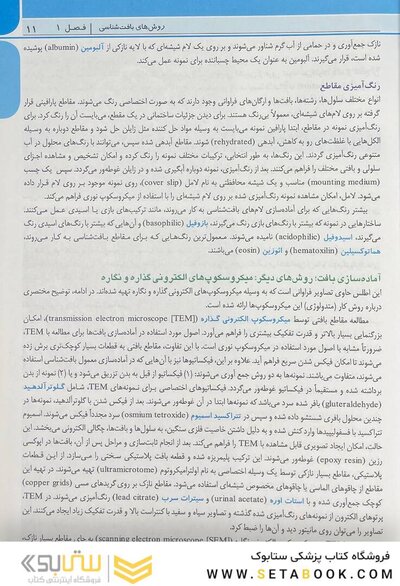 روش‌های بافت‌شناسی | فصل ۱ | ۱۱
نازک جمع‌آوری و در حمامی از آب گرم شناور می‌شوند و بر روی یک لام شیشه‌ای که با لایه نازکی از آلبومین (albumin) پوشیده
شده است، قرار می‌گیرند. آلبومین به عنوان یک محیط چسباننده برای نمونه عمل می‌کند.
رنگ‌آمیزی مقاطع
انواع مختلف سلول‌ها، رشته‌ها، بافت‌ها و ارگان‌های فراوانی وجود دارند که به صورت اختصاصی رنگ می‌شوند. مقاطع پارافینی قرار
گرفته بر روی لام‌های شیشه‌ای، معمولاً بی‌رنگ هستند. برای دیدن جزئیات ساختمانی در یک مقطع، می‌بایست آن را رنگ کرد. برای
رنگ‌آمیزی نمونه در مقاطع، ابتدا پارافین نمونه می‌بایست به وسیله مواد حل کننده مثل زایلن حل شود و مقاطع دوباره به وسیله
الکل‌هایی با غلظت‌های رو به کاهش، آبدهی (rehydrated) شوند. مقاطع آبدهی شده سپس، می‌توانند با رنگ‌های محلول در آب
متنوعی رنگ‌آمیزی گردند. این رنگ‌ها، به طور انتخابی، ترکیبات مختلف نمونه را رنگ کرده و امکان تشخیص و مشاهده اجزای
سلولی و بافتی مختلف را فراهم می‌کنند. بعد از رنگ‌آمیزی، نمونه دوباره آبگیری شده و در زایلن غوطه‌ور می‌گردد. سپس یک چسب
(mounting medium) مناسب و یک شیشه محافظتی به نام لامل (cover slip)، روی نمونه موجود بر روی لام قرار داده
می‌شود. لامل، امکان مشاهده نمونه رنگ‌آمیزی شده بر روی لام شیشه‌ای را با استفاده از میکروسکوپ نوری فراهم می‌کند.
بیشتر رنگ‌هایی که برای آماده‌سازی لام‌های بافت‌شناسی به کار می‌روند، مانند ترکیب‌های بازی یا اسیدی عمل می‌کنند.
ساختارهایی در نمونه که بیشتر با رنگ‌های بازی رنگ می‌گیرند، بازوفیل (basophilic) و آن‌هایی که بیشتر با رنگ‌های اسیدی رنگ
می‌گیرند، اسیدوفیل (acidophilic) نامیده می‌شوند. معمول‌ترین رنگ‌هایی که برای مقاطع بافت‌شناسی به کار می‌روند،
هماتوکسیلین (hematoxilin) و ائوزین (eosin) می‌باشند.
آماده‌سازی بافت: روش‌های دیگر: میکروسکوپ‌های الکترونی گذاره و نگاره
این اطلس حاوی تصاویر فراوانی است که به وسیله میکروسکوپ‌های الکترونی گذاره و نگاره تهیه شده‌اند. در ادامه، توضیح مختصری
درباره روش کار (متدولوژی) این میکروسکوپ‌ها ارائه شده است.
مطالعه مقاطع بافتی توسط میکروسکوپ الکترونی گذاره (transmission electron microscope [TEM])، امکان
بزرگنمایی بسیار بالاتر و قدرت تفکیک بیشتری را فراهم می‌آورد. اصول مورد استفاده در آماده‌سازی بافت‌ها برای مطالعه با TEM،
ضرورتاً مشابه با اصول مورد استفاده در میکروسکوپ نوری است. با این تفاوت، مقاطع بافتی به قطعات بسیار کوچک‌تری برش زده
می‌شوند تا امکان فیکس شدن سریع فراهم آید. علاوه بر این، فیکساتیوها نیز با آن‌هایی که در آماده‌سازی معمول بافت‌شناسی استفاده
می‌شوند، متفاوت می‌باشند. نمونه‌ها به دو روش جمع آوری می‌شوند: (۱) فیکساتیو از قبل به بدن تزریق می‌شود و یا (۲) نمونه از بدن
برداشته شده و مستقیماً در فیکساتیو غوطه‌ور می‌گردد. فیکساتیوهای اختصاصی برای نمونه‌های TEM، شامل گلوترآلدهید
(gluteraldehyde) بافر شده سرد می‌باشد که نمونه‌ها ابتدا در آن غوطه‌ور می‌شوند. بعد از فیکس شدن با گلوترآلدهید، نمونه‌ها در
چندین محلول بافری شستشو داده شده و سپس در تتراکسید اسمیوم (osmium tetroxide) سرد مجدداً فیکس می‌شوند. اسمیوم
تتراکسید با فسفولیپیدها وارد کنش شده و به دلیل داشتن خاصیت فلزی سنگین، به سلول‌ها و بافت‌ها، چگالی الکترونی می‌بخشد. این
حالت، امکان ایجاد تصویری قابل مشاهده با TEM را فراهم می‌کند. بعد از انجام ثابت‌سازی و مراحل پس از آن، بافت‌ها در اپوکسی
رزین (epoxy resin) غوطه‌ور می‌شوند. این ترکیب پلیمریزه شده و قطعه بافت پلاستیکی سختی را می‌سازد. از این قطعات
پلاستیکی، مقاطع بسیار نازکی توسط یک وسیله اختصاصی به نام اولترامیکروتوم (ultramicrotome) تهیه می‌شوند. در تهیه این
مقاطع از چاقوهای الماسی یا چاقوهای مخصوص شیشه‌ای استفاده می‌شود. مقاطع نازک بر روی گریدهای مسی (copper grids)
کوچک جمع‌آوری شده و با استات اوره (urinal acetate) و سیترات سرب (lead citrate) رنگ‌آمیزی می‌شوند. در TEM،
پرتوهای الکترون از نمونه‌های رنگ‌آمیزی شده گذشته و تصاویر سیاه و سفید با کنتراست بالا و قدرت تفکیک زیاد ایجاد می‌کنند. این
تصاویر را می‌توان روی مانیتور دید و آن‌ها را ضبط کرد.
(scanning electron microscope [SEM]) به جای مقاطع بسیار نازک،
فروشگاه کتاب پزشکی ستابوک
WWW.SETABOOK.COM
ستابوک
فروشگاه اینترنتی کتاب